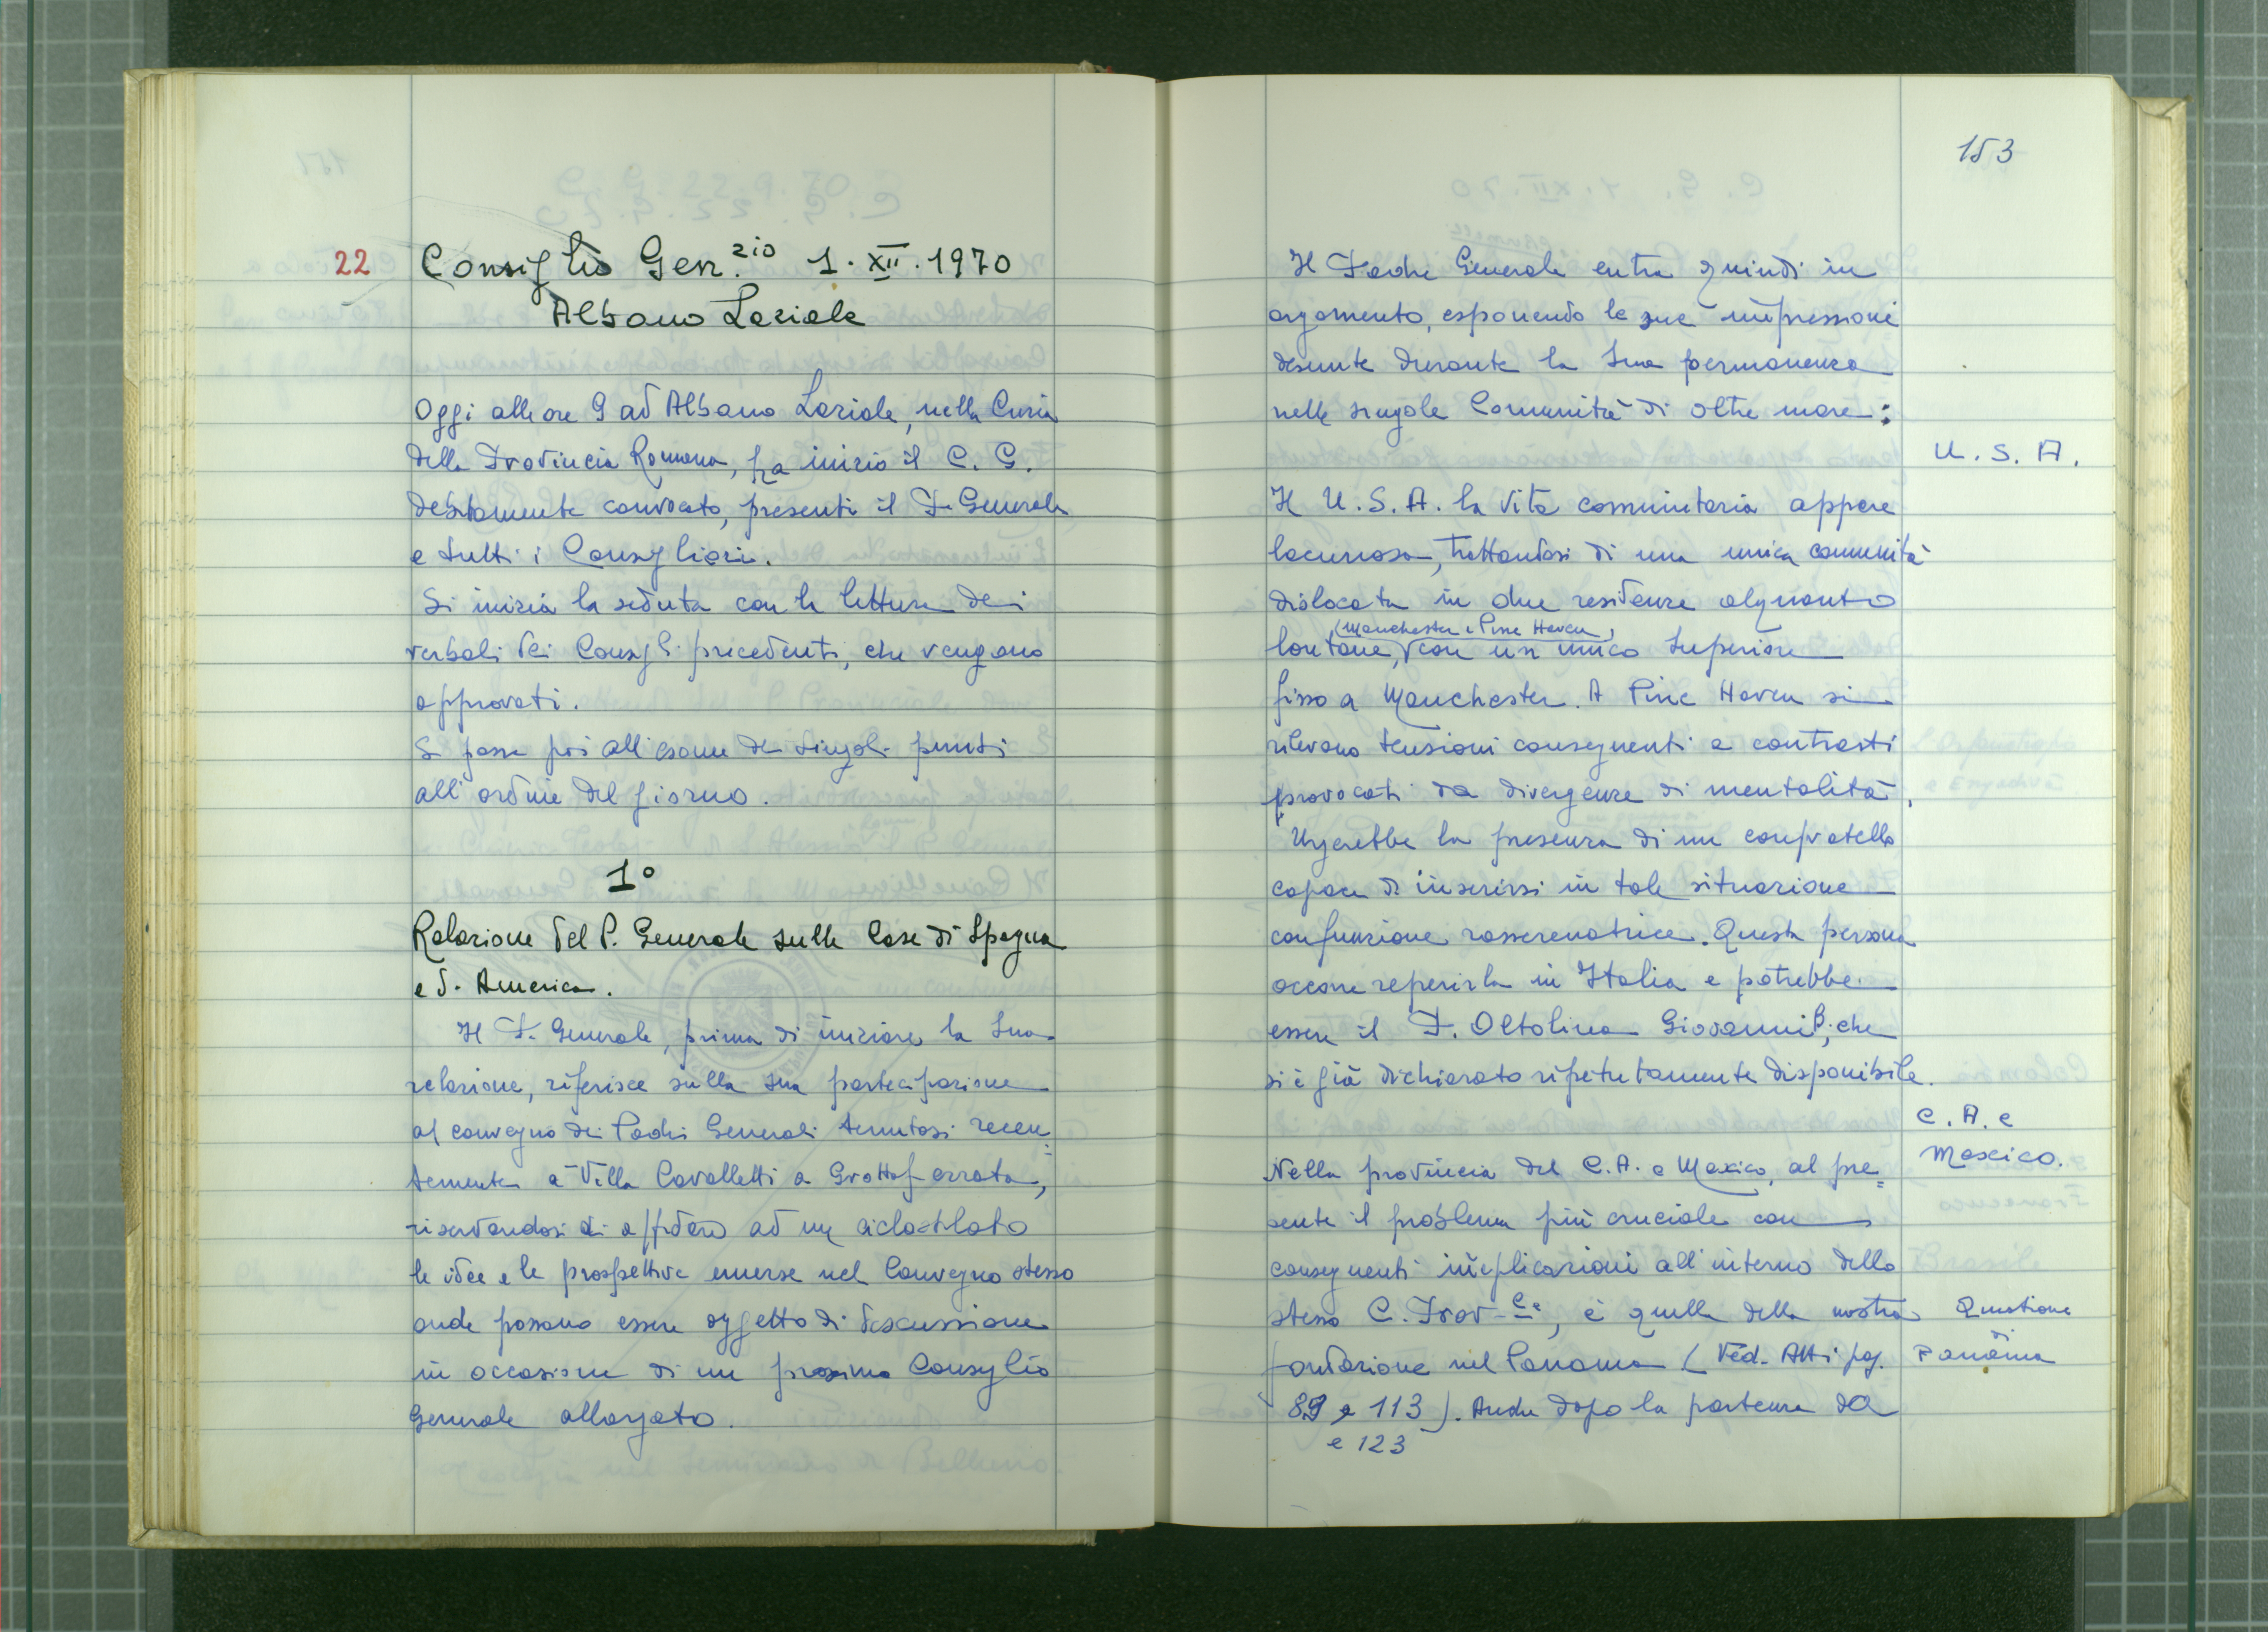 22 Consiglio Gen.zio 1.XII.1970
Albano Laziale
Oggi alle ore 9 ad Albano Laziale, nella Curia
della Provincia Romana, ha inizio il C. G.
debitamente convocato, presenti il P. Generale
e tutti i Consiglieri.
Si inizia la seduta con la lettura dei
verbali dei Consigli precedenti, che vengono
approvati.
Si passa poi all'esame dei singoli punti
all'ordine del giorno.
1°
Relazione del P. Generale sulle Case di Spagna
e d'America.
Il P. Generale, prima di iniziare la sua
relazione, riferisce sulla sua partecipazione
al convegno dei Padri Generali tenutosi recen=
temente a Villa Cavalletti a Grottaferrata,
riservandosi di affidare ad un ciclostilato
le idee e le prospettive emerse nel Convegno stesso
onde possano essere oggetto di discussione
in occasione di un prossimo Consiglio
Generale allargato.
153
Il Padre Generale entra quindi in
argomento, esponendo le sue impressioni
desunte durante la sua permanenza
nelle singole Comunità di oltre mare:
U. S. A.
Il U.S.A. la vita comunitaria appare
lacunosa, trattandosi di una unica comunità
dislocata in due residenze alquanto
(Manchester e Pine Haven)
lontane, con un unico Superiore
fisso a Manchester. A Pine Haven si
rilevano tensioni conseguenti a contrasti
provocati da divergenze di mentalità.
Urgerebbe la presenza di un confratello
capace di inserirsi in tale situazione
con funzione rasserenatrice. Questa persona
occorre reperirla in Italia e potrebbe
essere il P. Oltolina Giovanni B., che
si è già dichiarato ripetutamente disponibile.
C. A. e
Mexico.
Nella provincia del C.A. e Mexico, al pre=
sente il problema più cruciale con
conseguenti implicazioni all'interno dello
stesso C. Prov-le, è quello della nostra
Questione
di
Panàma
fondazione nel Panama (Ved. Atti pag.
89 e 113). Anche dopo la partenza da
e 123